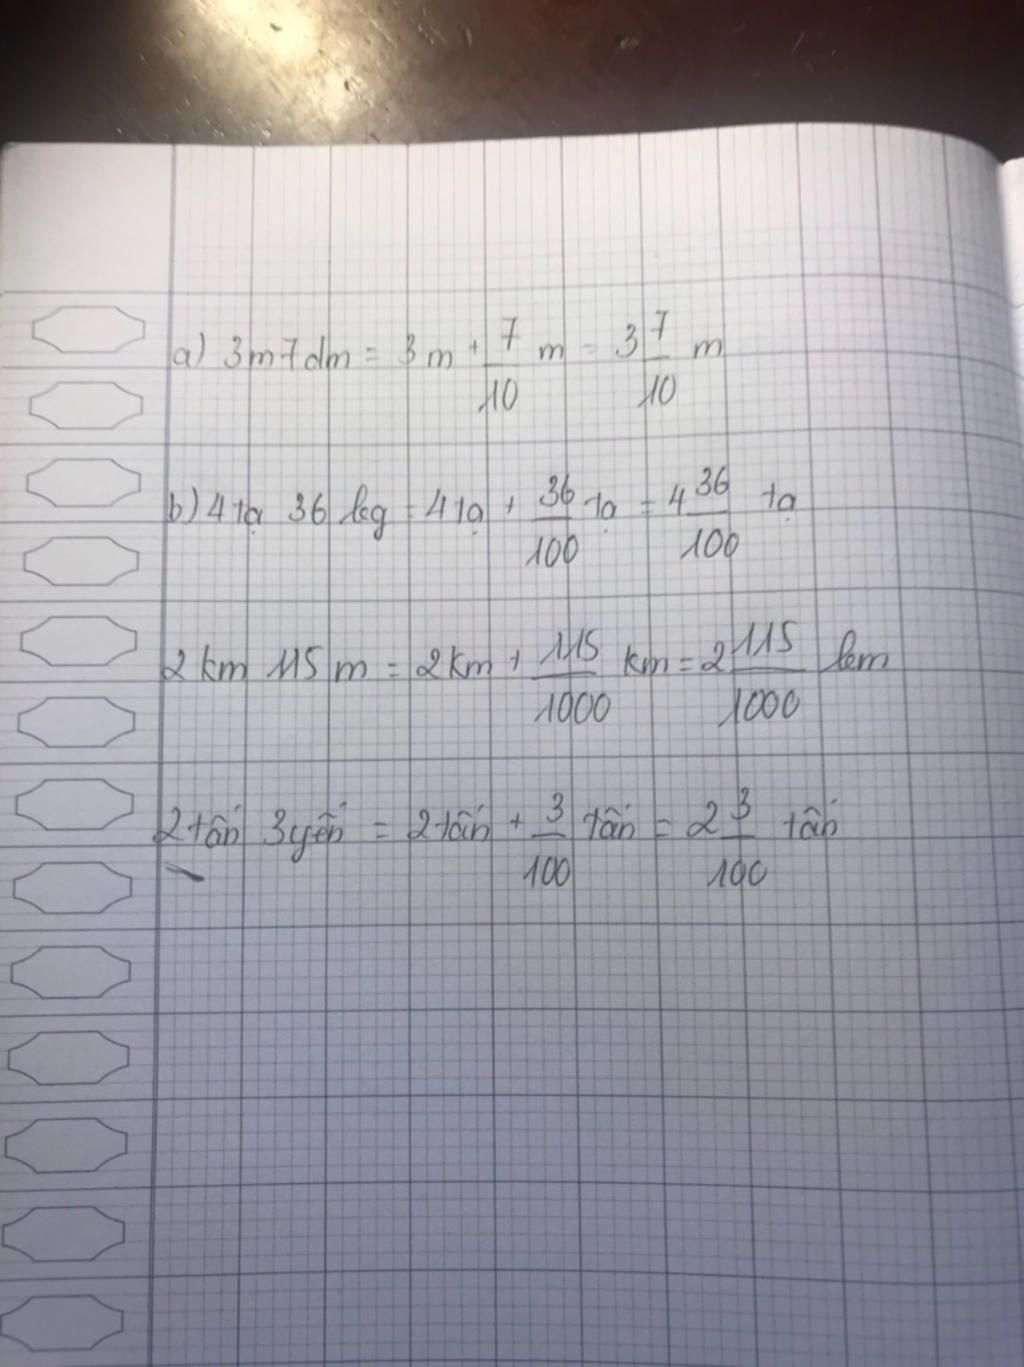 a) 3m7dm = 3m + 7/10 m = 3 7/10 m
b) 4 tạ 36 kg = 4 tạ + 36/100 tạ = 4 36/100 tạ
2 km 115 m = 2 km + 115/1000 km = 2 115/1000 km
2 tấn 3 yến = 2 tấn + 3/100 tấn = 2 3/100 tấn